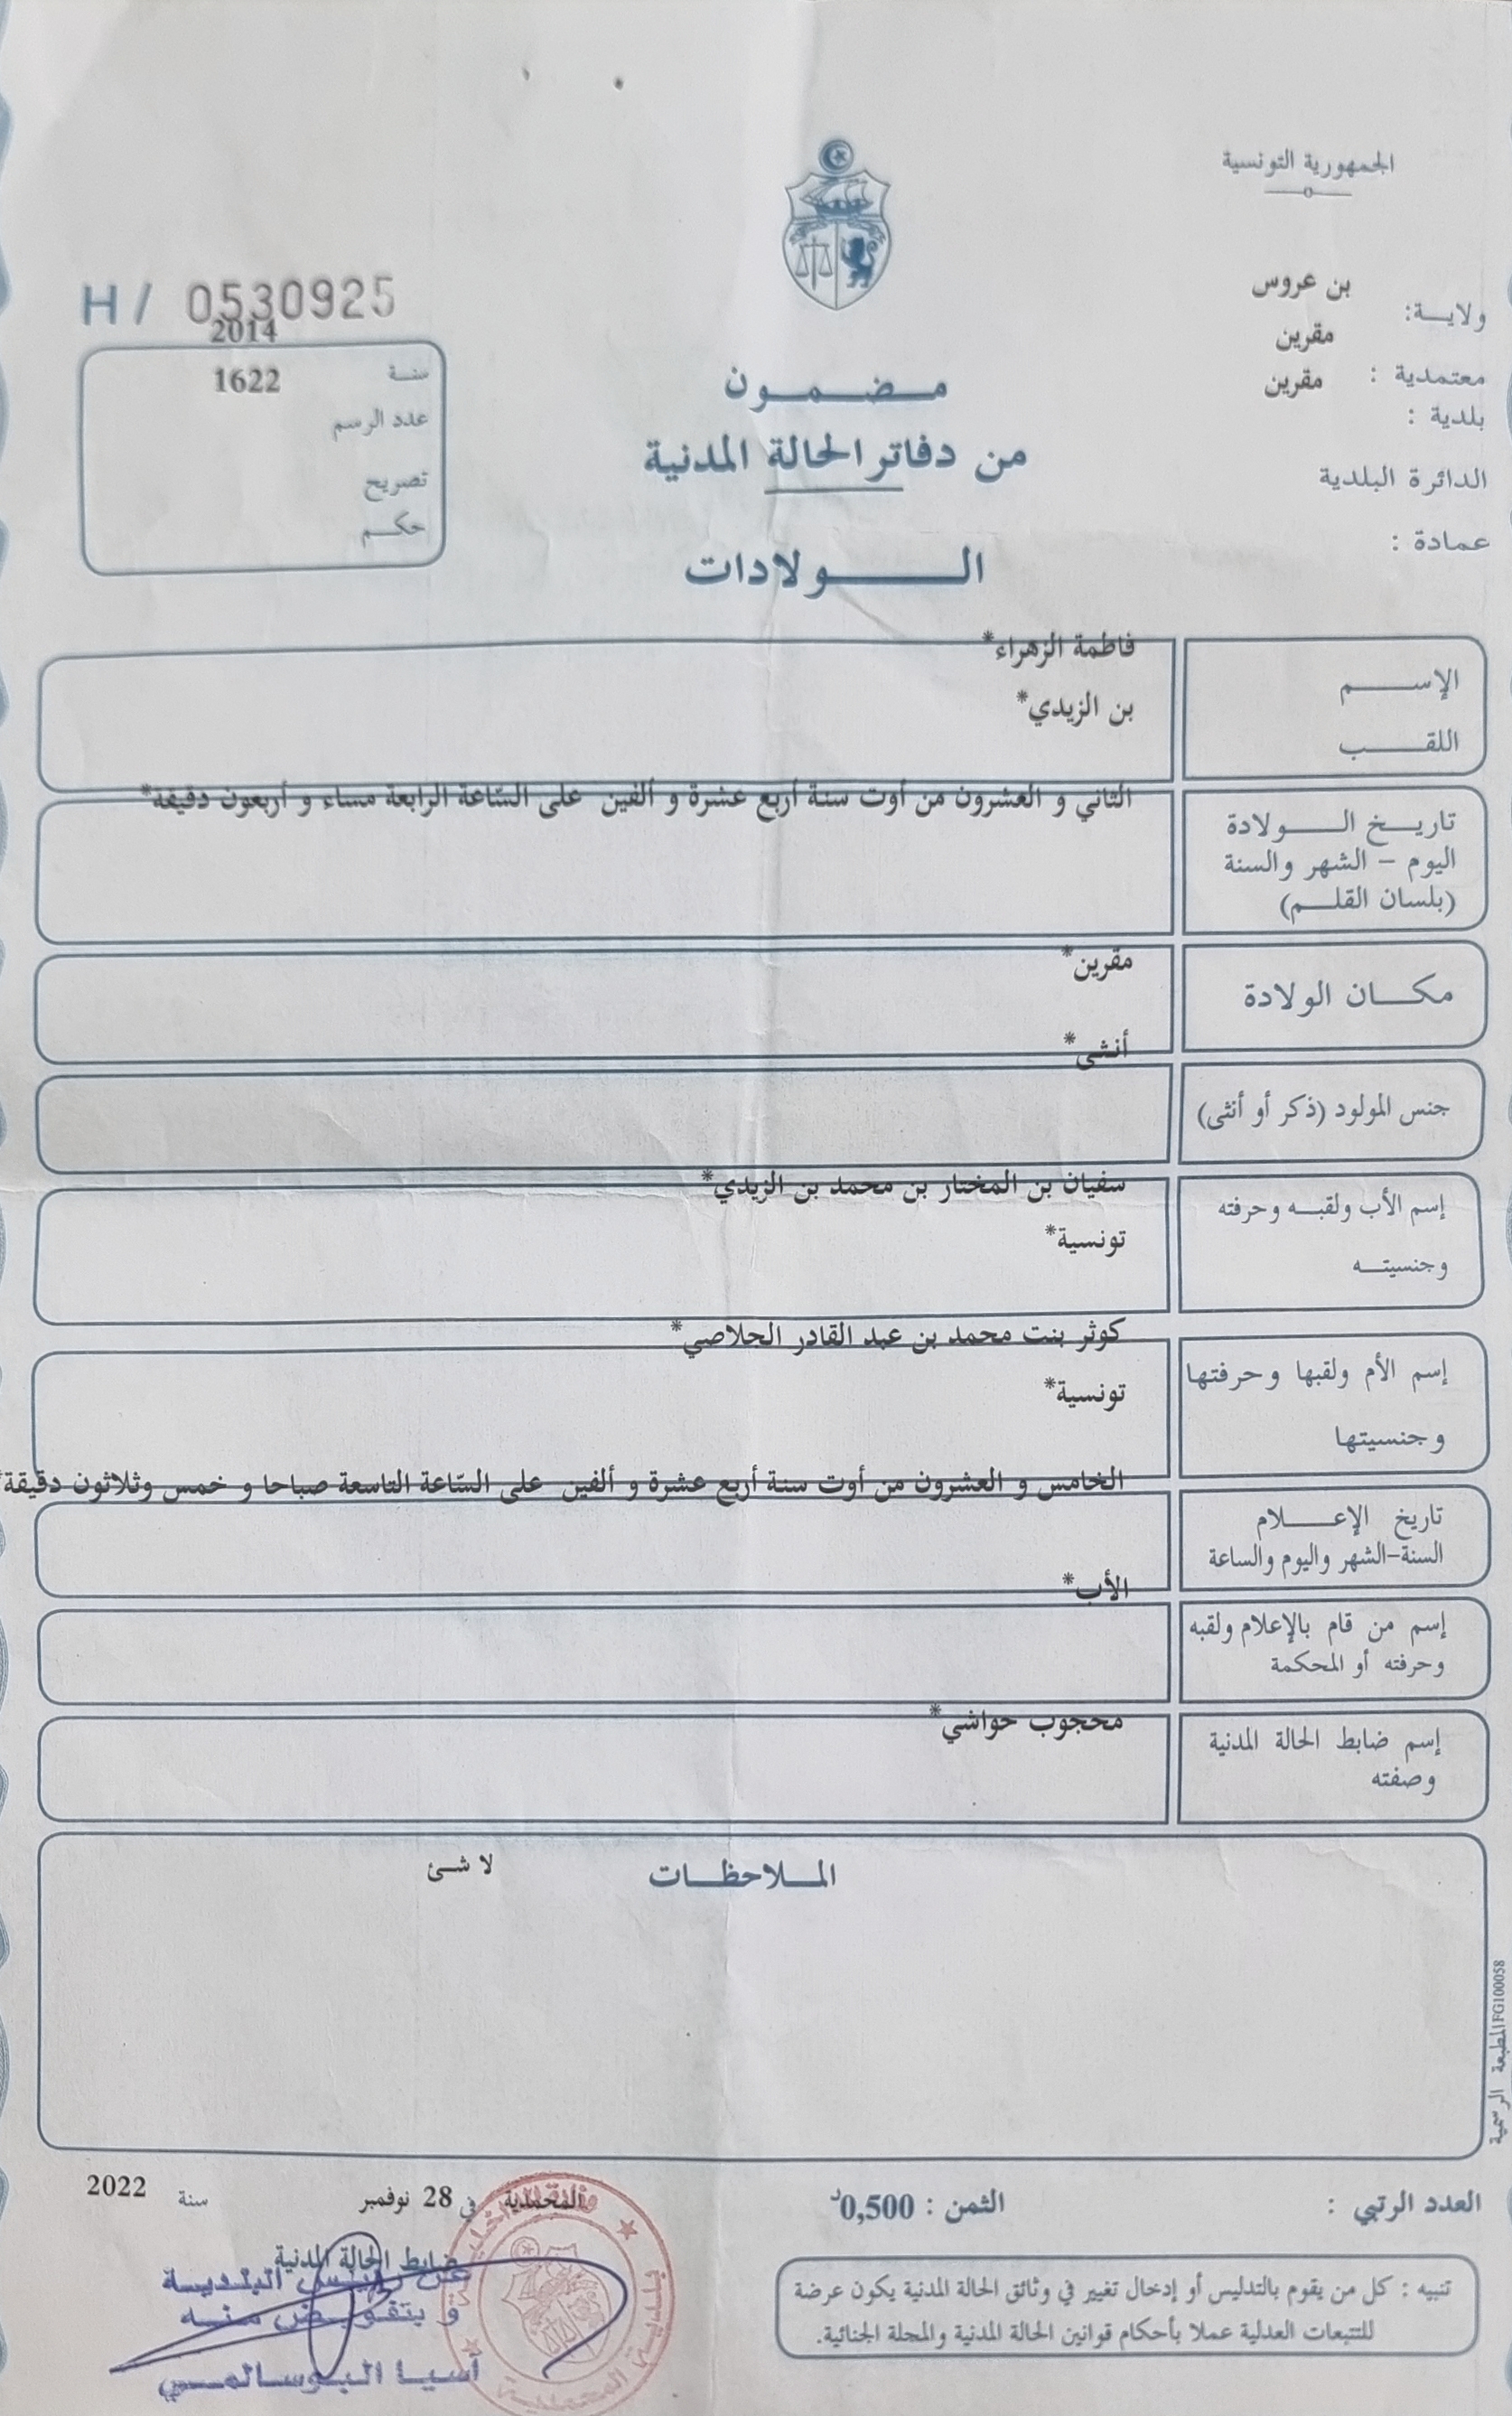 الجمهورية التونسية
ولايـــة: بن عروس
معتمدية : مقرين
بلدية : مقرين
الدائرة البلدية
عمادة :
H/ 0530925
سنـة 2014
عدد الرسم 1622
تصريح
حكـــم
مـــضـــمـــون
من دفاتر الحالة المدنية
الـــــولادات
الإســـــم فاطمة الزهراء*
اللقـــــب بن الزيدي*
تاريـــخ الـــــولادة الثاني و العشرون من أوت سنة أربع عشرة و ألفين على السّاعة الرابعة مساء و أربعون دقيقة*
اليوم – الشهر والسنة
(بلسان القلـــم)
مكـــان الولادة مقرين*
جنس المولود (ذكر أو أنثى) أنثى*
إسم الأب ولقبـــه وحرفته سفيان بن المختار بن محمد بن الزيدي*
وجنسيتـــه تونسية*
إسم الأم ولقبها وحرفتها كوثر بنت محمد بن عبد القادر الجلاصي*
وجنسيتها تونسية*
تاريخ الإعـــــلام الخامس و العشرون من أوت سنة أربع عشرة و ألفين على السّاعة التاسعة صباحا و خمس وثلاثون دقيقة*
السنة-الشهر واليوم والساعة
إسم من قام بالإعلام ولقبه الأب*
وحرفته أو المحكمة
إسم ضابط الحالة المدنية محجوب حواشي*
وصفته
المـــلاحظـــات لا شئ
المطبعة الرسمية FG100058
العدد الرتبي :
الثمن : 0,500د
المحمدية في 28 نوفمبر سنة 2022
ضابط الحالة المدنية
عن رئيس البلديـــة
و بتفويـــض منـــه
آسيـــا البـوسـالمـــي
تنبيه : كل من يقوم بالتدليس أو إدخال تغيير في وثائق الحالة المدنية يكون عرضة
للتتبعات العدلية عملا بأحكام قوانين الحالة المدنية والمجلة الجنائية.